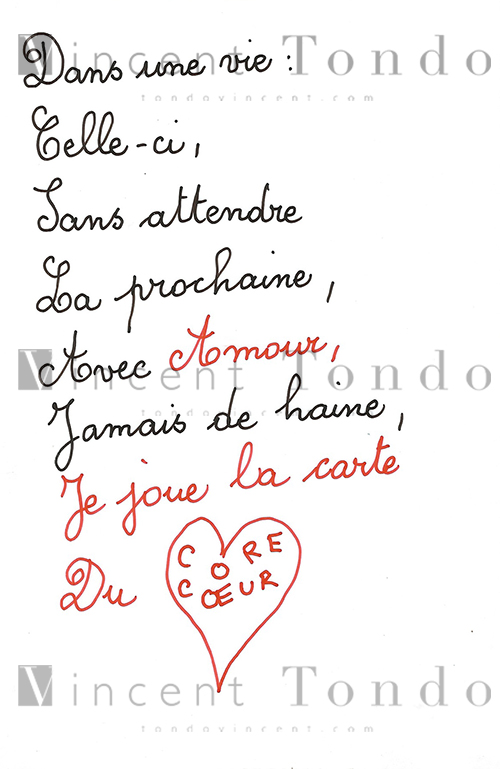 Vincent Tondo
Dans une vie :
tondovincent.com
Celle-ci,
Sans attendre
La prochaine,
Avec Amour,
Vincent Tondo
Jamais de haine,
tondovincent.com
Je joue la carte
Du
CORE
CŒUR
Vincent Tondo
tondovincent.com